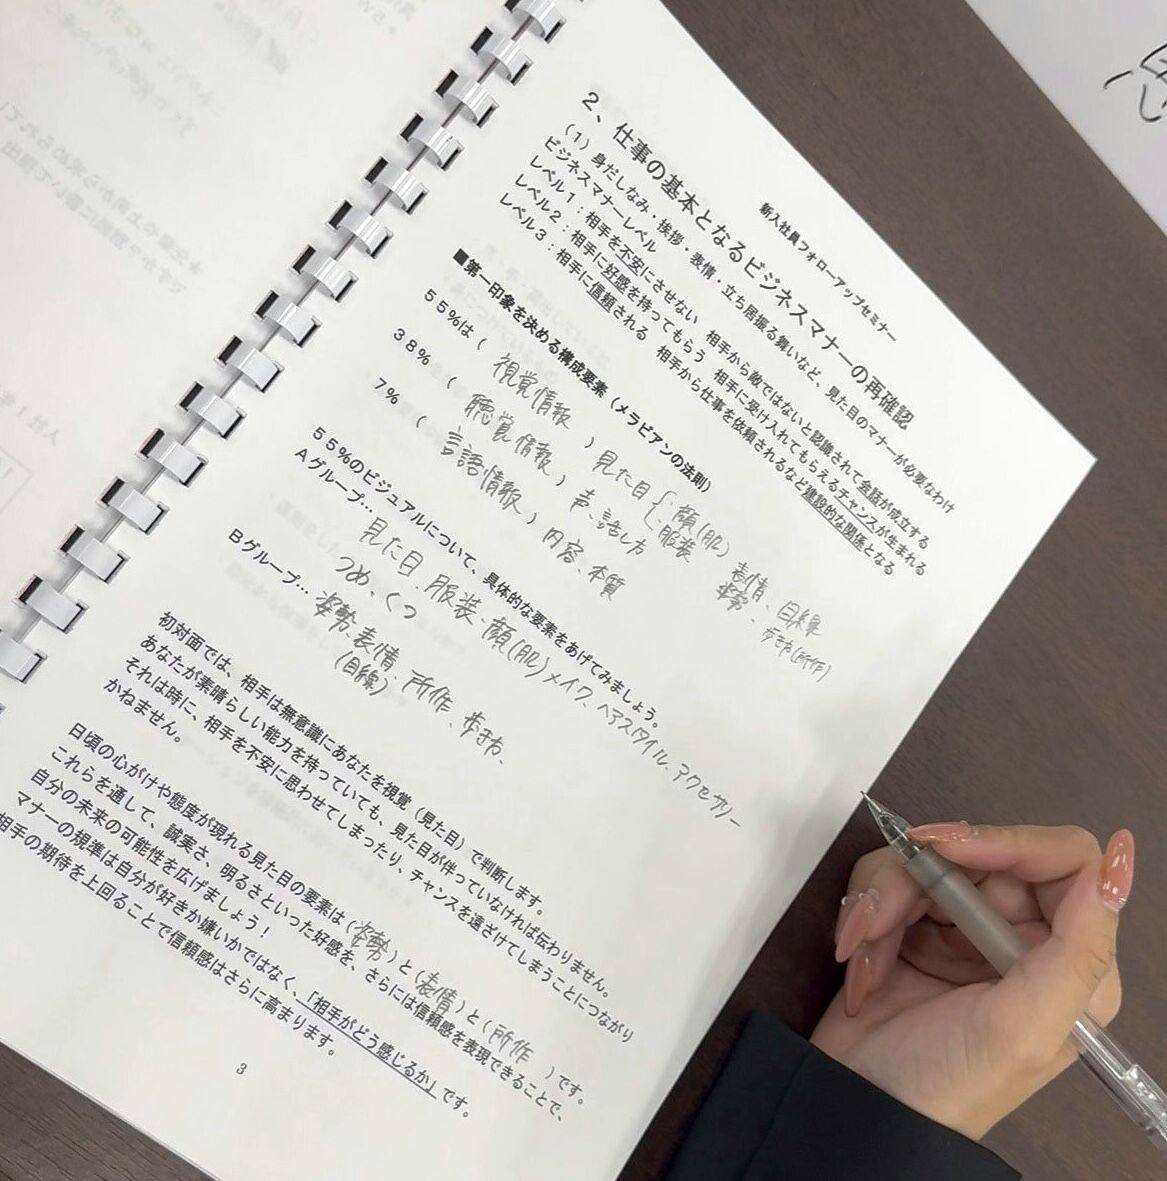 新入社員フォローアップセミナー
2、仕事の基本となるビジネスマナーの再確認
(1)身だしなみ・挨拶・表情・立ち居振る舞いなど、見た目のマナーが必要なわけ
ビジネスマナーレベル
レベル1：相手を不安にさせない 相手から敵ではないと認識されて会話が成立する
レベル2：相手に好感を持ってもらう 相手に受け入れてもらえるチャンスが生まれる
レベル3：相手に信頼される 相手から仕事を依頼されるなど建設的な関係となる
■第一印象を決める構成要素（メラビアンの法則）
55%は（ 視覚情報 ）見た目 { 顔(肌) 表情、目線
服装 姿勢、歩き方(所作)
38%（ 聴覚情報 ）声、話し方
7%（ 言語情報 ）内容、本質
55%のビジュアルについて、具体的な要素をあげてみましょう。
Aグループ… 見た目、服装、顔(肌)メイク、ヘアスタイル、アクセサリー
つめ、くつ
Bグループ… 姿勢、表情、所作、歩き方、
(目線)
初対面では、相手は無意識にあなたを視覚（見た目）で判断します。
あなたが素晴らしい能力を持っていても、見た目が伴っていなければ伝わりません。
それは時に、相手を不安に思わせてしまったり、チャンスを遠ざけてしまうことにつながり
かねません。
日頃の心がけや態度が現れる見た目の要素は（姿勢）と（表情）と（所作）です。
これらを通して、誠実さ、明るさといった好感を、さらには信頼感を表現できることで、
自分の未来の可能性を広げましょう！
マナーの規準は自分が好きか嫌いかではなく、「相手がどう感じるか」です。
相手の期待を上回ることで信頼感はさらに高まります。
3